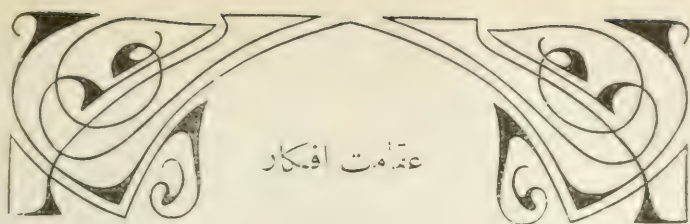 عقامت افكار